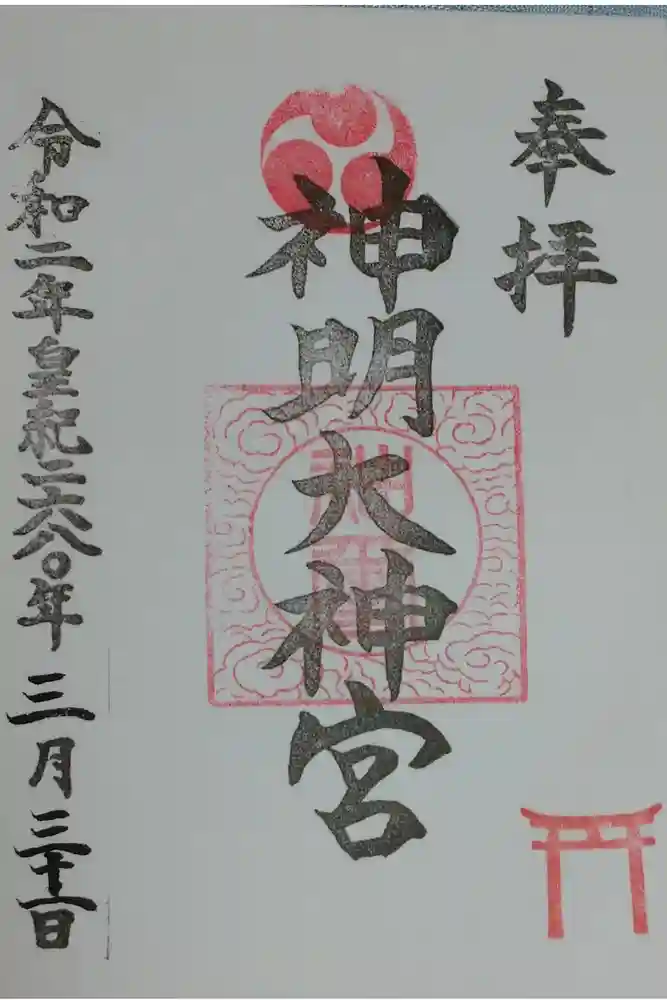 奉拝
神明大神宮
令和二年皇紀二六八〇年三月三十一日